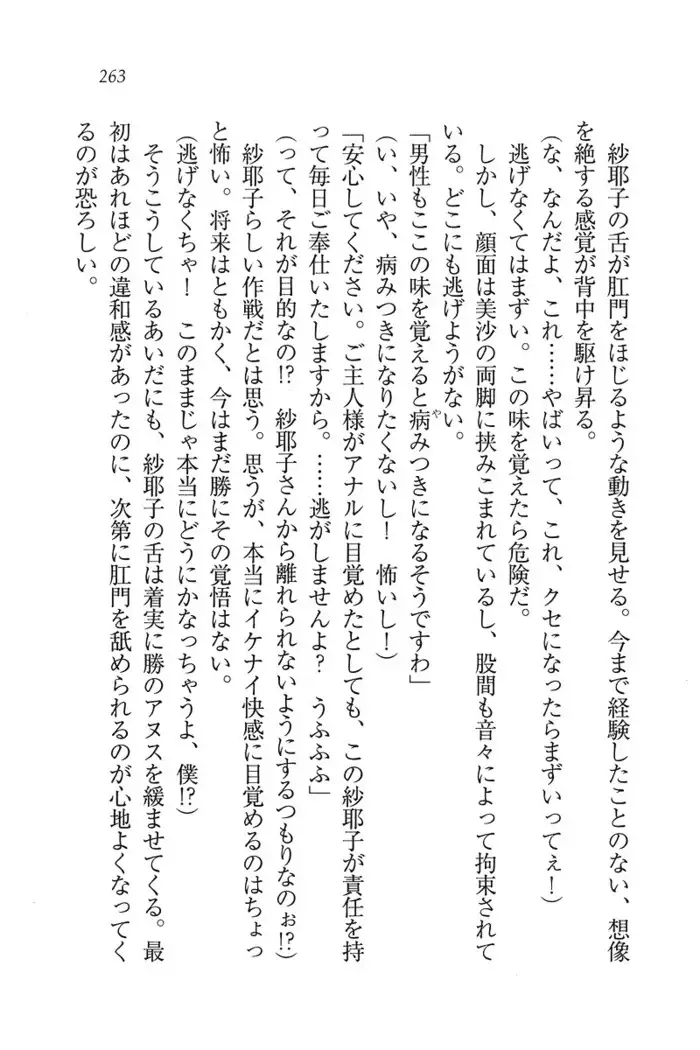 263
紗耶子の舌が肛門をほじるような動きを見せる。今まで経験したことのない、想像
を絶する感覚が背中を駆け昇る。
(な、なんだよ、これ……やばいって、これ、クセになったらまずいってぇ!)
逃げなくてはまずい。この味を覚えたら危険だ。
しかし、顔面は美沙の両脚に挟みこまれているし、股間も音々によって拘束されて
いる。どこにも逃げようがない。
「男性もここの味を覚えると病みつきになるそうですわ」
(い、いや、病みつきになりたくないし! 怖いし!)
「安心してください。ご主人様がアナルに目覚めたとしても、この紗耶子が責任を持
って毎日ご奉仕いたしますから。……逃がしませんよ? うふふふ」
(って、それが目的なの!? 紗耶子さんから離れられないようにするつもりなのぉ!?)
紗耶子らしい作戦だとは思う。思うが、本当にイケナイ快感に目覚めるのはちょっ
と怖い。将来はともかく、今はまだ勝にその覚悟はない。
(逃げなくちゃ! このままじゃ本当にどうにかなっちゃうよ、僕!?)
そうこうしているあいだにも、紗耶子の舌は着実に勝のアヌスを緩ませてくる。最
初はあれほどの違和感があったのに、次第に肛門を舐められるのが心地よくなってく
るのが恐ろしい。